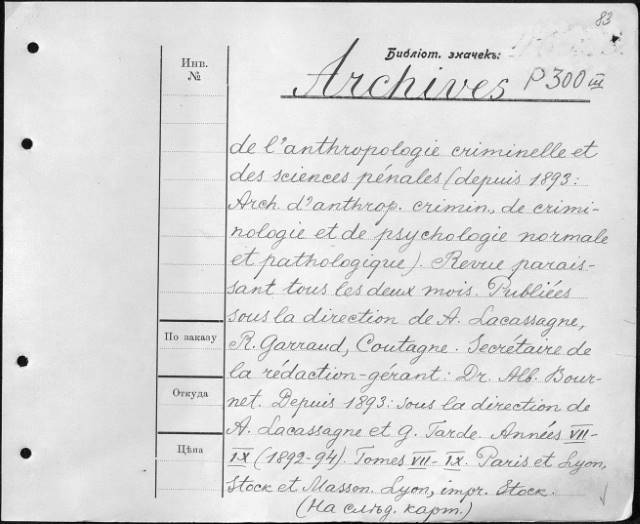 83
Библіот. значекъ:
Инв.
№
Archives P300 III
de l'anthropologie criminelle et
des sciences pénales (depuis 1893:
Arch. d'anthrop. crimin., de crimi-
nologie et de psychologie normale
et pathologique). Revue parais-
sant tous les deux mois. Publiées
sous la direction de A. Lacassagne,
По заказу
R. Garraud, Coutagne. Secrétaire de
la rédaction-gérant: Dr. Alb. Bour-
Откуда
net. Depuis 1893: sous la direction de
A. Lacassagne et G. Tarde. Années VII-
Цѣна
IX (1892-94). Tomes VII-IX. Paris et Lyon,
Stock et Masson. Lyon, impr. Stock.
(На слѣд. карт.)